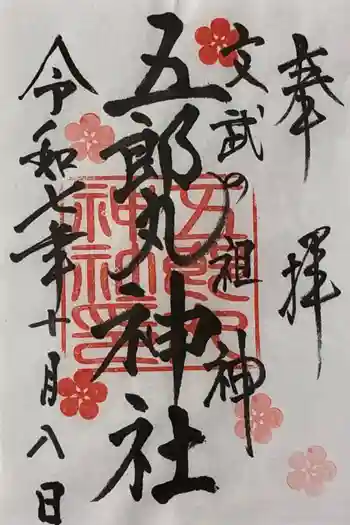 奉拝
文武の祖神
五郎丸神社
令和七年十月八日
五郎丸
神社印